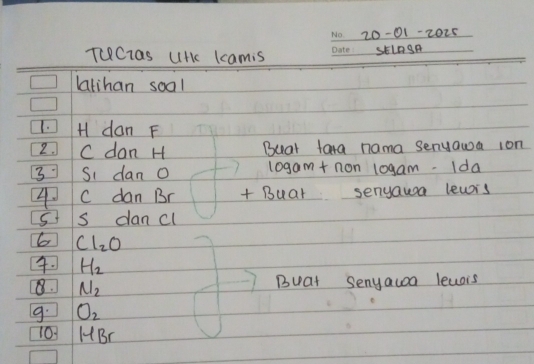 No. 20-01-2025
Date: SELASA
TUGAS Utk Kamis
latihan soal
1. H dan F
2. C dan H
3. Si dan O
4. C dan Br
5. S dan Cl
Buat tata nama senyawa ion
logam + non logam - Ida
+ Buat senyawa lewis
6. Cl₂O
7. H₂
8. N₂
9. O₂
10. HBr
Buat senyawa lewis